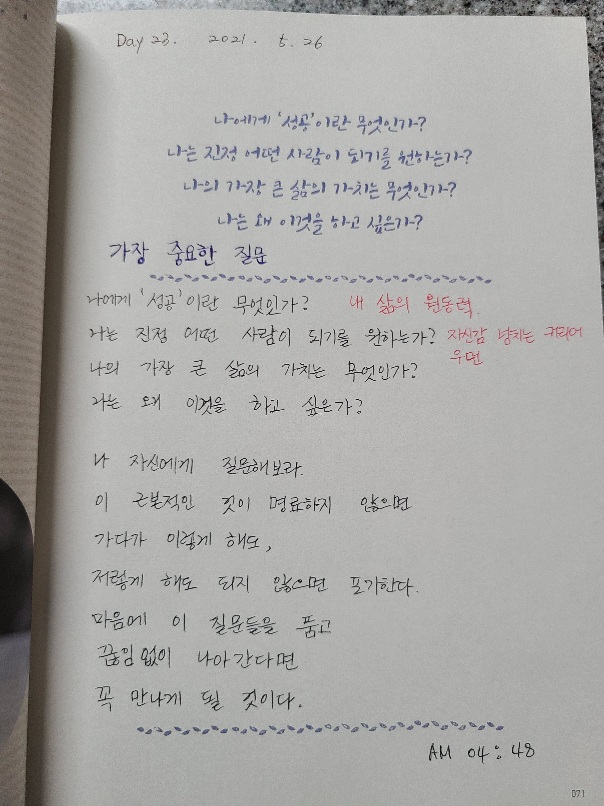 Day 23. 2021. 5. 26
나에게 '성공'이란 무엇인가?
나는 진정 어떤 사람이 되기를 원하는가?
나의 가장 큰 삶의 가치는 무엇인가?
나는 왜 이것을 하고 싶은가?
가장 중요한 질문
나에게 '성공'이란 무엇인가? 내 삶의 원동력.
나는 진정 어떤 사람이 되기를 원하는가? 자신감 넘치는 커리어
우먼
나의 가장 큰 삶의 가치는 무엇인가?
나는 왜 이것을 하고 싶은가?
나 자신에게 질문해보라.
이 근본적인 것이 명료하지 않으면
가다가 이렇게 해도,
저렇게 해도 되지 않으면 포기한다.
마음에 이 질문들을 품고
끊임없이 나아간다면
꼭 만나게 될 것이다.
AM 04:48
071